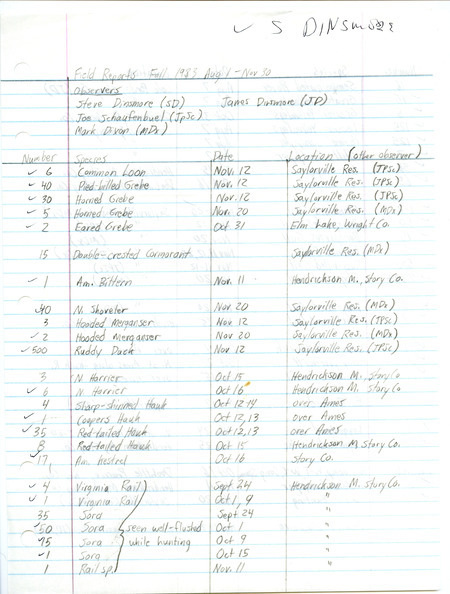 ✓ S DINSMORE
Field Reports Fall 1983 Aug 1 - Nov 30
Observers
Steve Dinsmore (SD) James Dinsmore (JD)
Joe Schaufenbuel (JpSc)
Mark Dixon (MDx)
Number Species Date Location (other observer)
✓ 6 Common Loon Nov. 12 Saylorville Res. (JPSc)
✓ 40 Pied-billed Grebe Nov. 12 Saylorville Res. (JPSc)
✓ 30 Horned Grebe Nov. 12 Saylorville Res. (JPSc)
✓ 5 Horned Grebe Nov. 20 Saylorville Res. (MDx)
✓ 2 Eared Grebe Oct 31 Elm Lake, Wright Co.
15 Double-crested Cormorant Saylorville Res. (MDx)
✓ 1 Am. Bittern Nov. 11 Hendrickson M., Story Co.
✓40 N. Shoveler Nov 20 Saylorville Res. (MDx)
3 Hooded Merganser Nov 12 Saylorville Res. (JPSc)
✓ 2 Hooded Merganser Nov 20 Saylorville Res. (MDx)
✓ 500 Ruddy Duck Nov 12 Saylorville Res. (JPSc)
3 N Harrier Oct 15 Hendrickson M., Story Co
✓ 6 N Harrier Oct 16 Hendrickson M. Story Co
4 Sharp-shinned Hawk Oct 12, 14 over Ames
✓ 1 Coopers Hawk Oct 12, 13 over Ames
✓ 35 Red-tailed Hawk Oct 12, 13 over Ames
8 Red-tailed Hawk Oct 15 Hendrickson M. Story Co.
✓ 17 Am. Kestrel Oct 16 Story Co.
✓ 4 Virginia Rail Sept 24 Hendrickson M. Story Co.
✓ 1 Virginia Rail Oct 1, 9 "
35 Sora Sept 24 "
✓50 Sora seen well-flushed Oct 1 "
✓15 Sora while hunting Oct 9 "
✓1 Sora Oct 15 "
1 Rail sp. Nov. 11 "